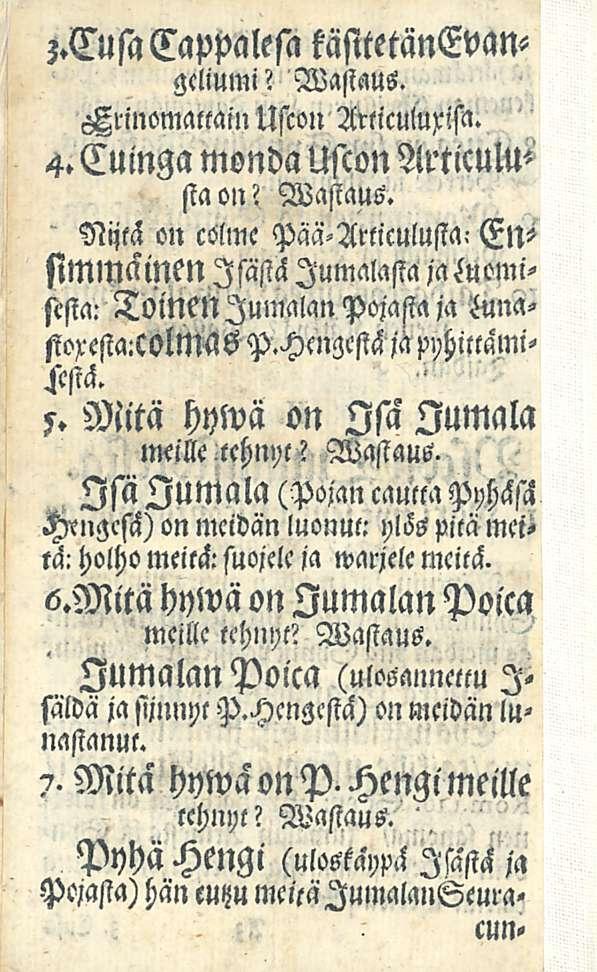 3. Cusa Cappalesa käsitetän Evan-
geliumi? Wastaus.
Erinomattain Uscon Articuluxisa.
4. Cuinga monda Uscon Articulu-
sta on? Wastaus.
Nijtä on colme Pää-Articulusta: En-
simmäinen Isästä Jumalasta ja Luomi-
sesta: Toinen Jumalan Pojasta ja Luna-
stoxesta: colmas P. Hengestä ja pyhittämi-
sestä.
5. Mitä hywä on Isä Jumala
meille tehnyt? Wastaus.
Isä Jumala (Pojan cautta Pyhäsä
Hengesä) on meidän luonut: ylös pitä mei-
tä: holho meitä: suojele ja warjele meitä.
6. Mitä hywä on Jumalan Poica
meille tehnyt? Wastaus.
Jumalan Poica (ulosannettu I-
säldä ja sijnnyt P. Hengestä) on meidän lu-
nastanut.
7. Mitä hywä on P. Hengi meille
tehnyt? Wastaus.
Pyhä Hengi (uloskäypä Isästä ja
Pojasta) hän cutzu meitä Jumalan Seura-
cun-